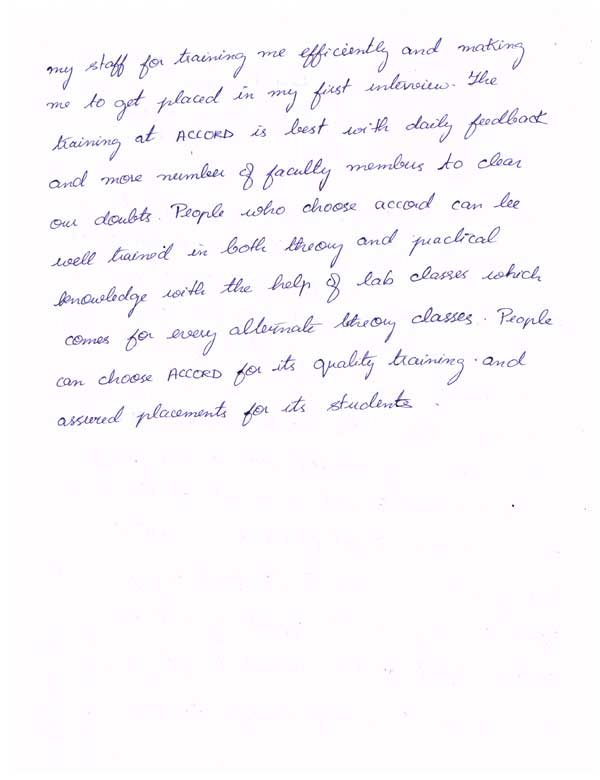 my staff for training me efficiently and making
me to get placed in my first interview. The
training at ACCORD is best with daily feedback
and more number of faculty members to clear
our doubts. People who choose accord can be
well trained in both theory and practical
knowledge with the help of lab classes which
comes for every alternate theory classes. People
can choose ACCORD for its quality training. and
assured placements for its students.